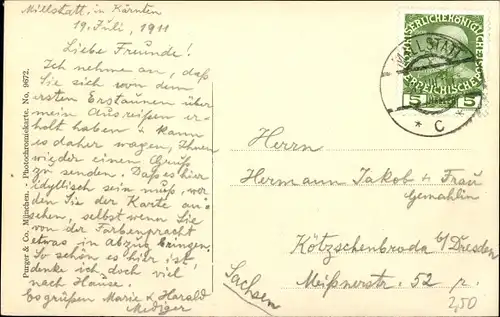 Millstatt, in Kärnten
19. Juli, 1911
Liebe Freunde!
Ich nehme an, daß
Sie sich von dem
ersten Erstaunen über
mein Ausreißen er-
holt haben & kann
es daher wagen, Ihnen
wieder einen Gruß
zu senden. Daß es hier
idyllisch sein muß, wer-
den Sie der Karte an-
sehen, selbst wenn Sie
von der Farbenpracht
etwas in Abzug bringen.
So schön es hier ist,
denke ich doch viel
nach Hause.
Es grüßen Marie & Harald
Mediger
Purger & Co. München. - Photochromiekarte. No. 9672.
KAISERLICHE KÖNIGLICHE
ÖSTERREICHISCHE POST
5 HELLER 5
MILLSTATT
* C *
Herrn
Hermann Jakob & Frau
Gemahlin
Kötzschenbroda b/Dresden
Meißnerstr. 52 p.
Sachsen
2,50